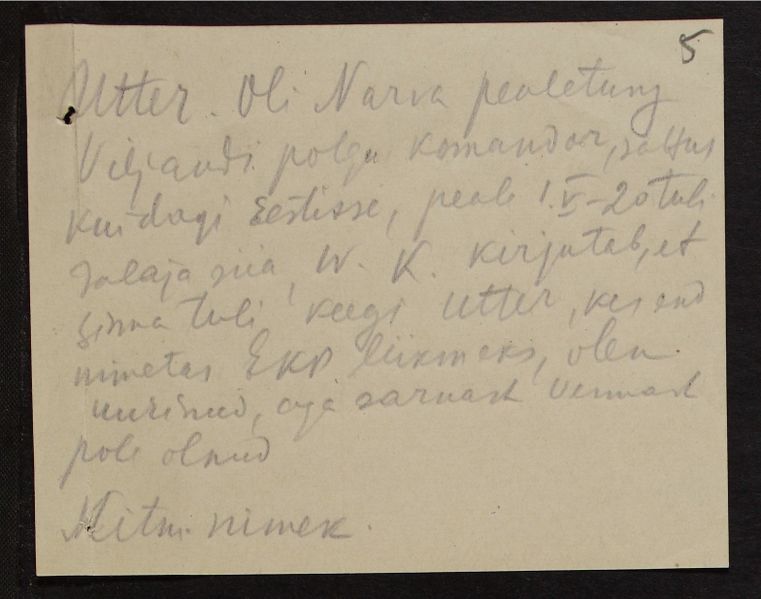 5
Utter. Oli Narva pealetung
Viljandi polgu komandör, sattus
kuidagi Eestisse, peale 1.V-20 tuli
salaja siia, W. K. kirjutab, et
sinna tuli keegi Utter, kes end
nimetas EKP liikmeks, olen
uurinud, aga sarnast vennast
pole olnud
Mitu nimek.